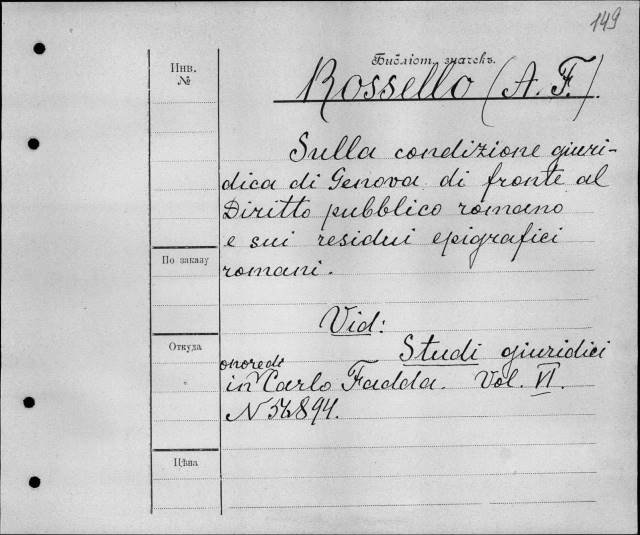 149
Библіот. значекъ.
Инв.
№
Rossello (A. F.)
Sulla condizione giuri-
dica di Genova di fronte al
Diritto pubblico romano
e sui residui epigrafici
По заказу
romani.
Vid:
Откуда
Studi giuridici
onore di
in Carlo Fadda. Vol. VI.
Цѣна